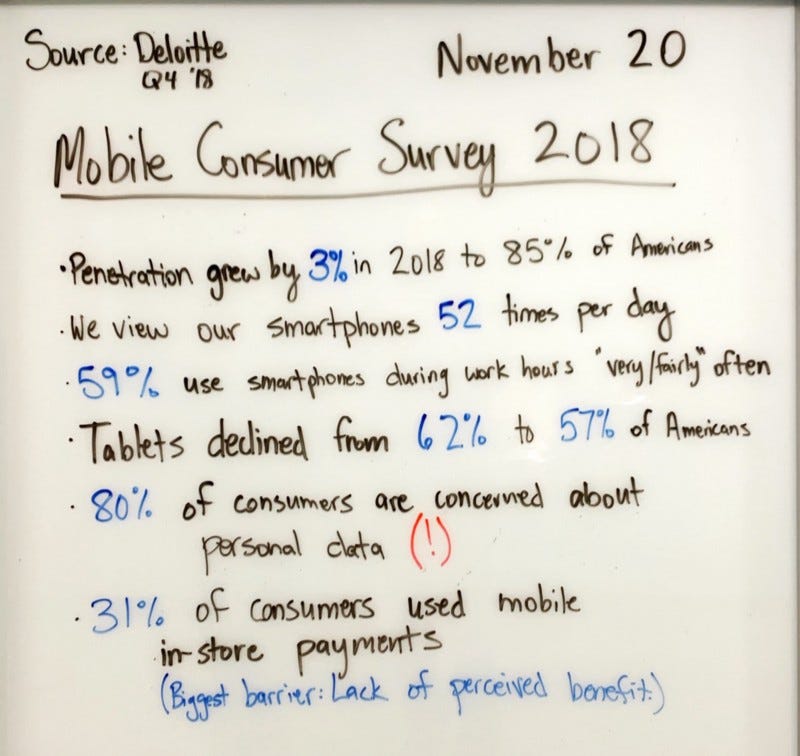 Source: Deloitte
Q4 '18
November 20
Mobile Consumer Survey 2018
·Penetration grew by 3% in 2018 to 85% of Americans
·We view our smartphones 52 times per day
·59% use smartphones during work hours "very/fairly" often
·Tablets declined from 62% to 57% of Americans
·80% of consumers are concerned about
personal data (!)
·31% of consumers used mobile
in-store payments
(Biggest barrier: Lack of perceived benefit.)